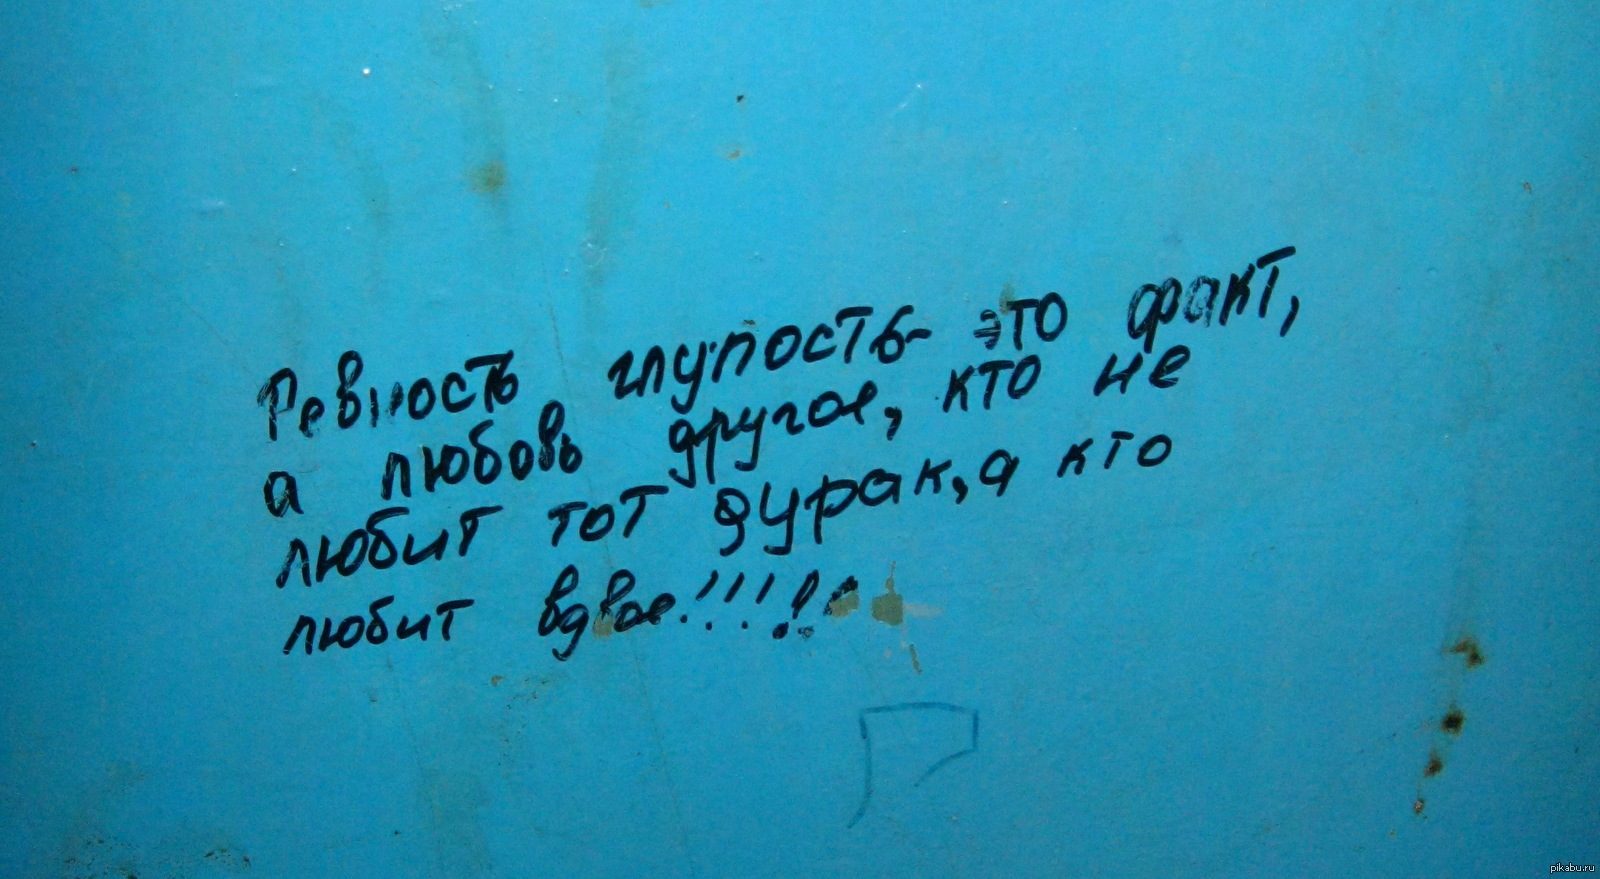 Ревность глупость- это факт,
а любовь другое, кто не
любит тот дурак, а кто
любит вдвое!!!!!
pikabu.ru